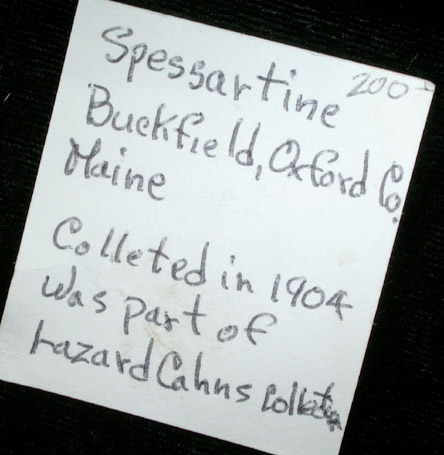 Spessartine 200-
Buckfield, Oxford Co.
Maine
Colleted in 1904
Was part of
Lazard Cahns Collection